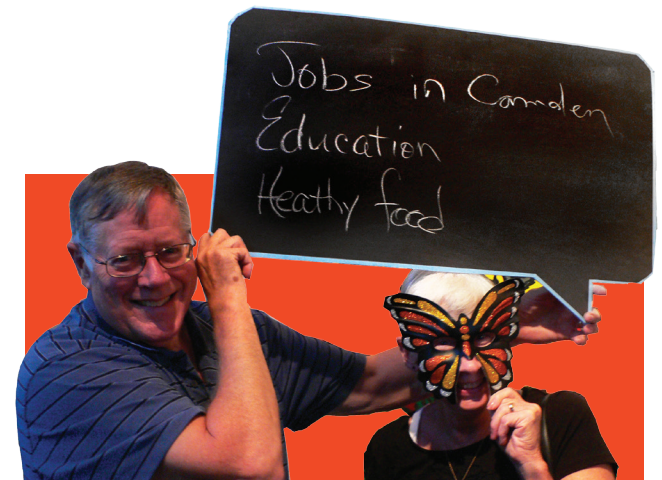 Jobs in Camden
Education
Heathy food